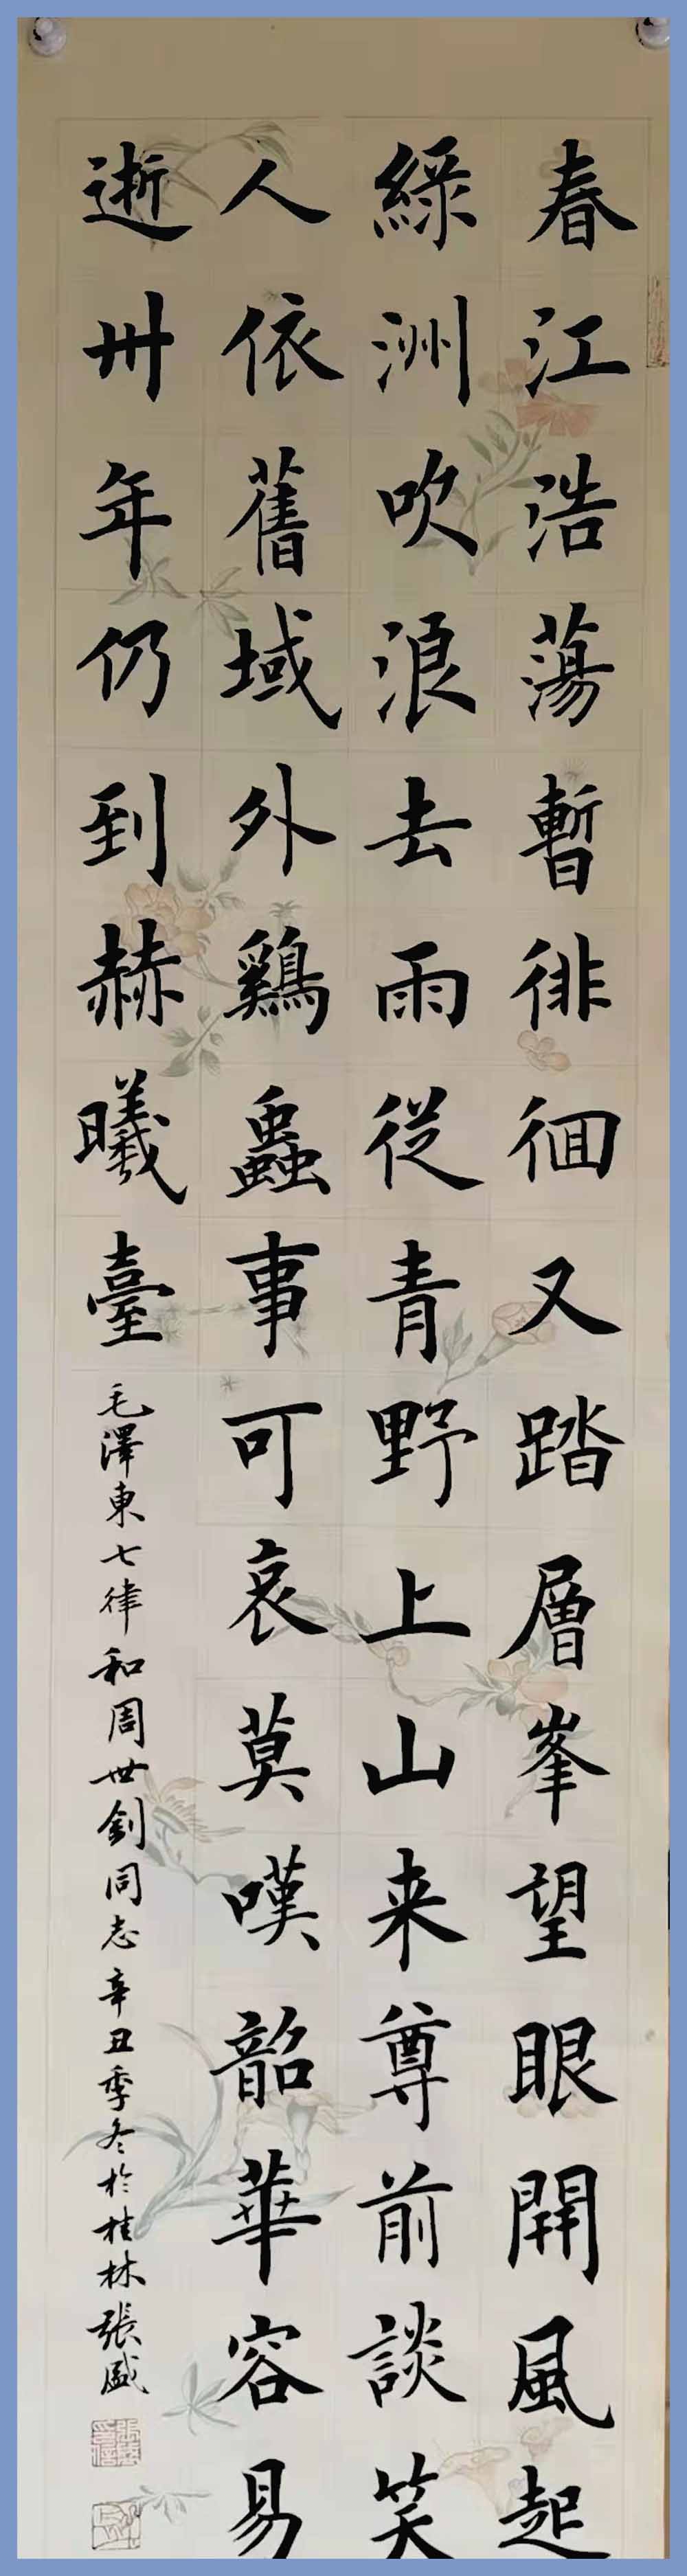 春江浩蕩暫徘徊又踏層峯望眼開風起
綠洲吹浪去雨從青野上山来尊前談笑
人依舊域外鷄蟲事可哀莫嘆韶華容易
逝卅年仍到赫曦臺
毛澤東七律和周世釗同志辛丑季冬於桂林張盛